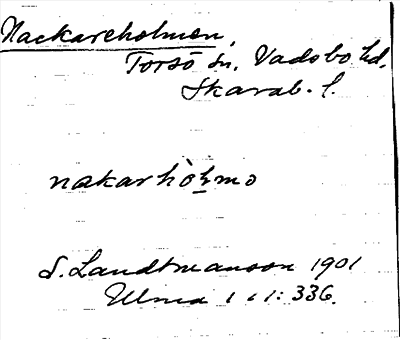 Nackareholmen,
Torsö sn, Vadsbo hd,
Skarab. l.
nakarhòḻmə
S. Landtmanson 1901
Ulma 111:336.